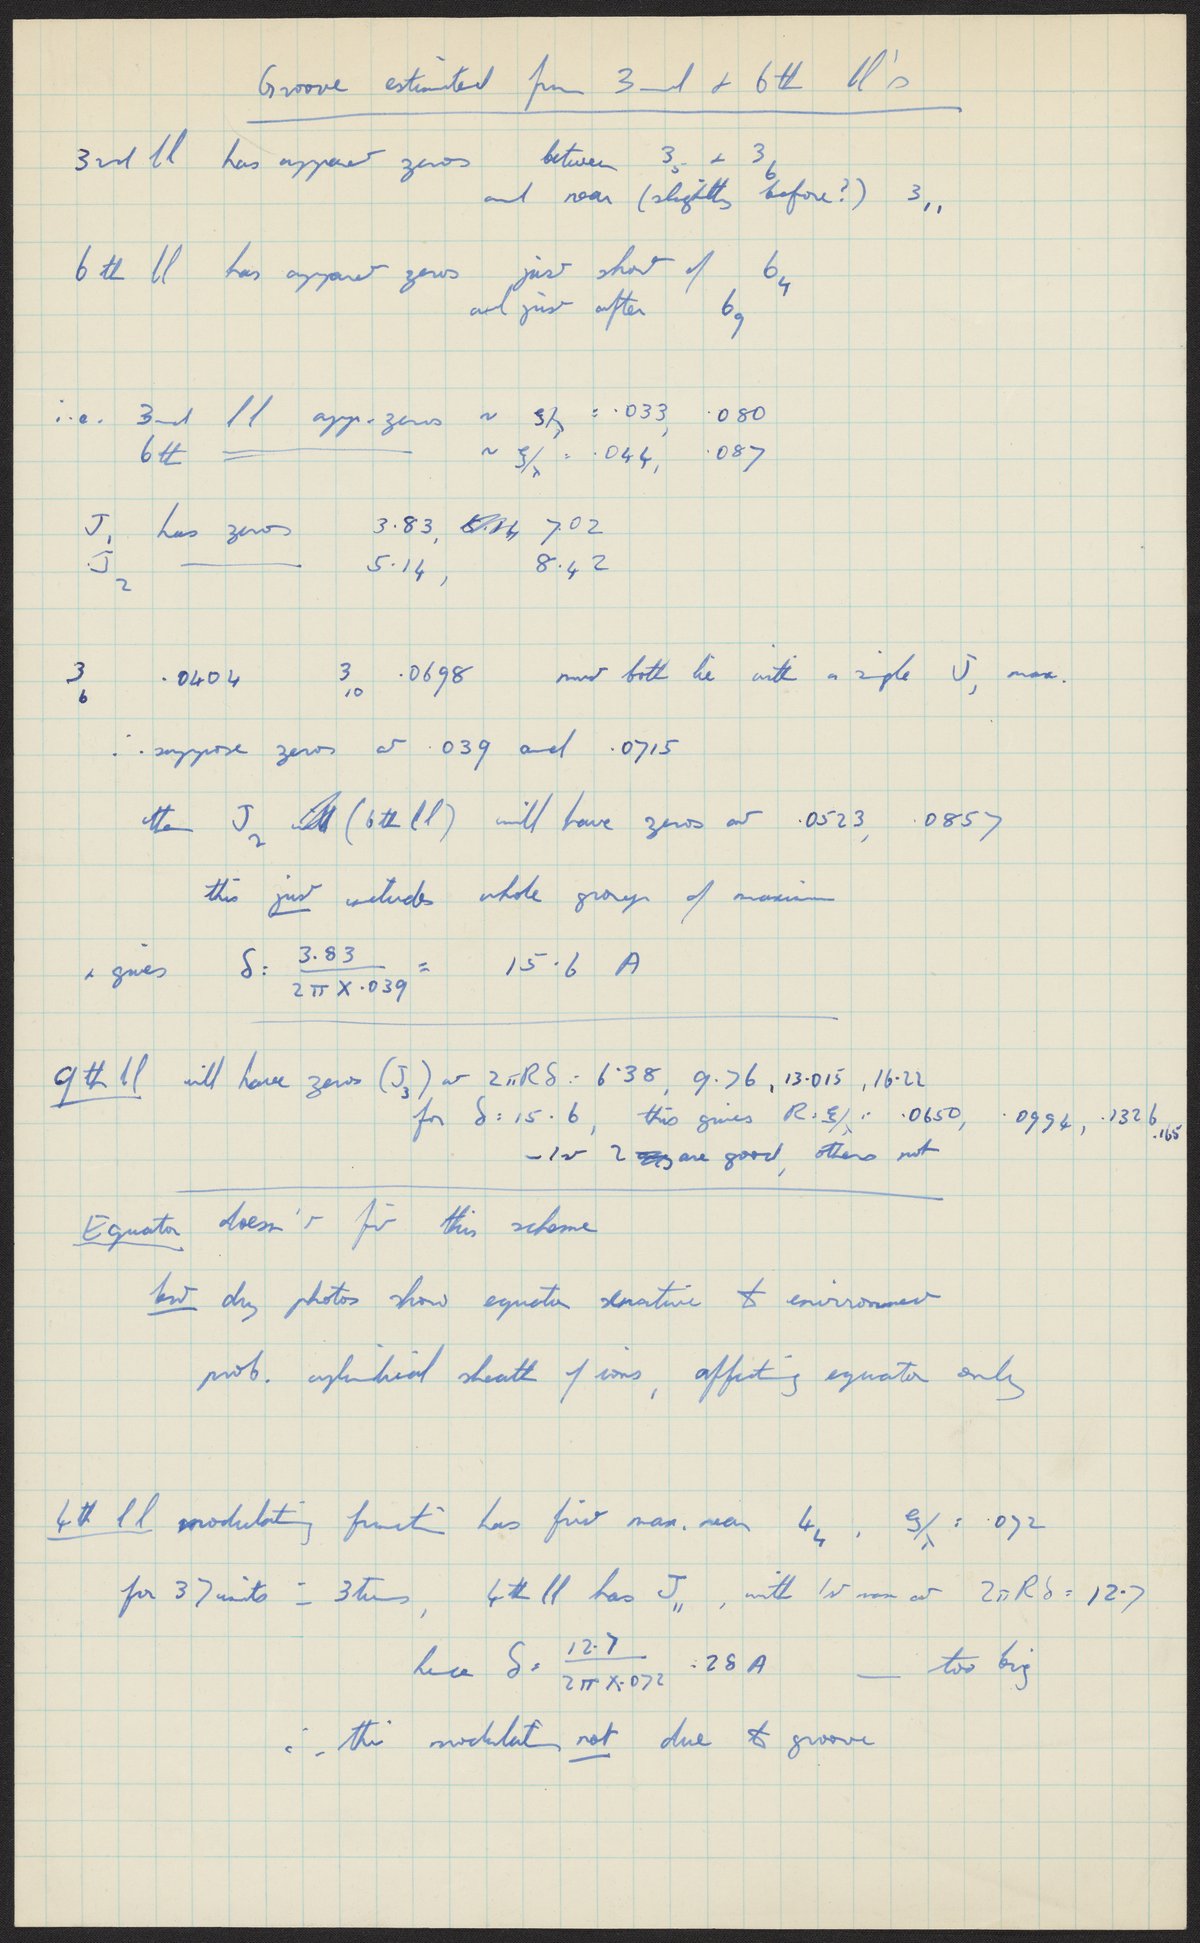 Groove estimated from 3rd & 6th ll's
3rd ll has apparent zeros between 3₅ & 3₆
and near (slightly before?) 3₁₁
6th ll has apparent zeros just short of 6₄
and just after 6₉
i.e. 3rd ll app. zeros ~ ξ/λ = .033, .080
6th ———— ~ ξ/λ = .044, .087
J₁ has zeros 3.83, 7.02
J₂ ———— 5.14, 8.42
3₆ .0404 3₁₀ .0698 must both lie with a single J₁ max.
∴ suppose zeros at .039 and .0715
then J₂ (6th ll) will have zeros at .0523, .0857
this just includes whole group of maxima
& gives δ = 3.83 / 2π × .039 = 15.6 A
9th ll will have zeros (J₃) at 2πRδ = 6.38, 9.76, 13.015, 16.22
for δ = 15.6, this gives R = ξ/λ = .0650, .0994, .1326, .165
— 1st 2 are good, others not
Equator doesn't fit this scheme
but dry photos show equator sensitive to environment
prob. cylindrical sheath of ions, affecting equator only
4th ll modulating function has first max. near 4₄, ξ/λ = .072
for 37 units = 3 turns, 4th ll has J₁₁, with 1st max at 2πRδ = 12.7
hence δ = 12.7 / 2π × .072 = 28 A — too big
∴ this modulation not due to groove